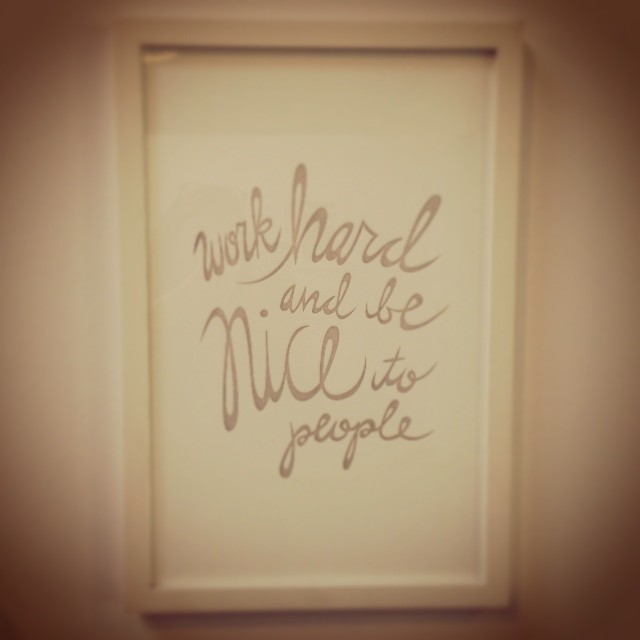 work hard
and be
Nice to
people